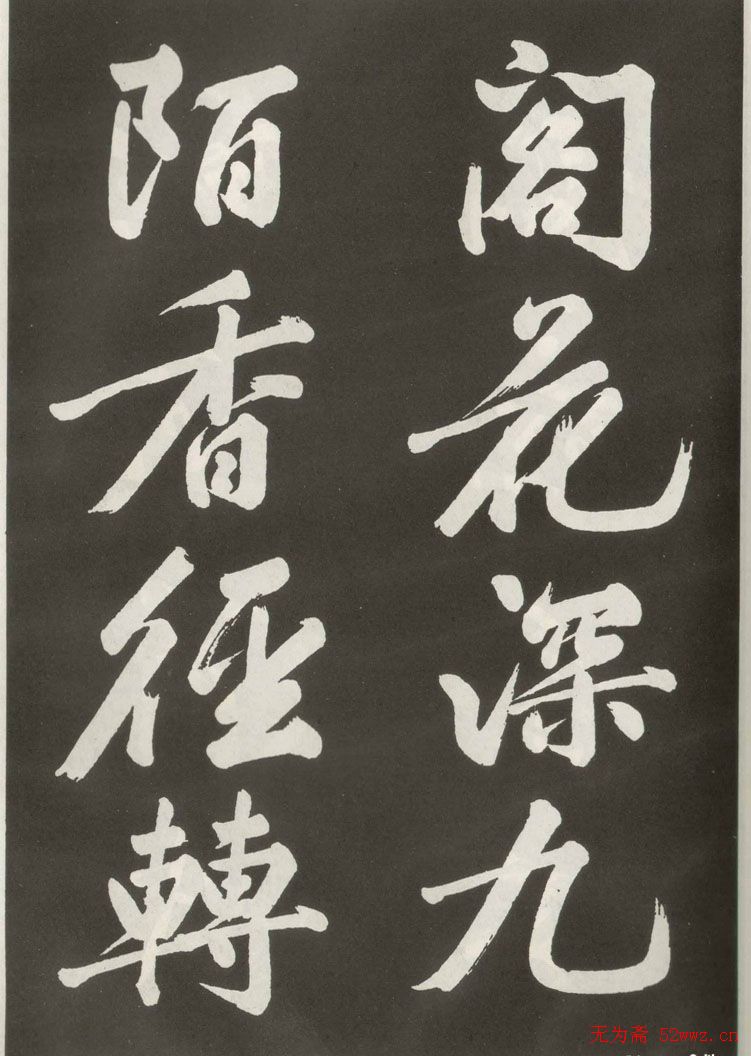 阁花深九
陌香徑轉
无为斋 52wwz.cn